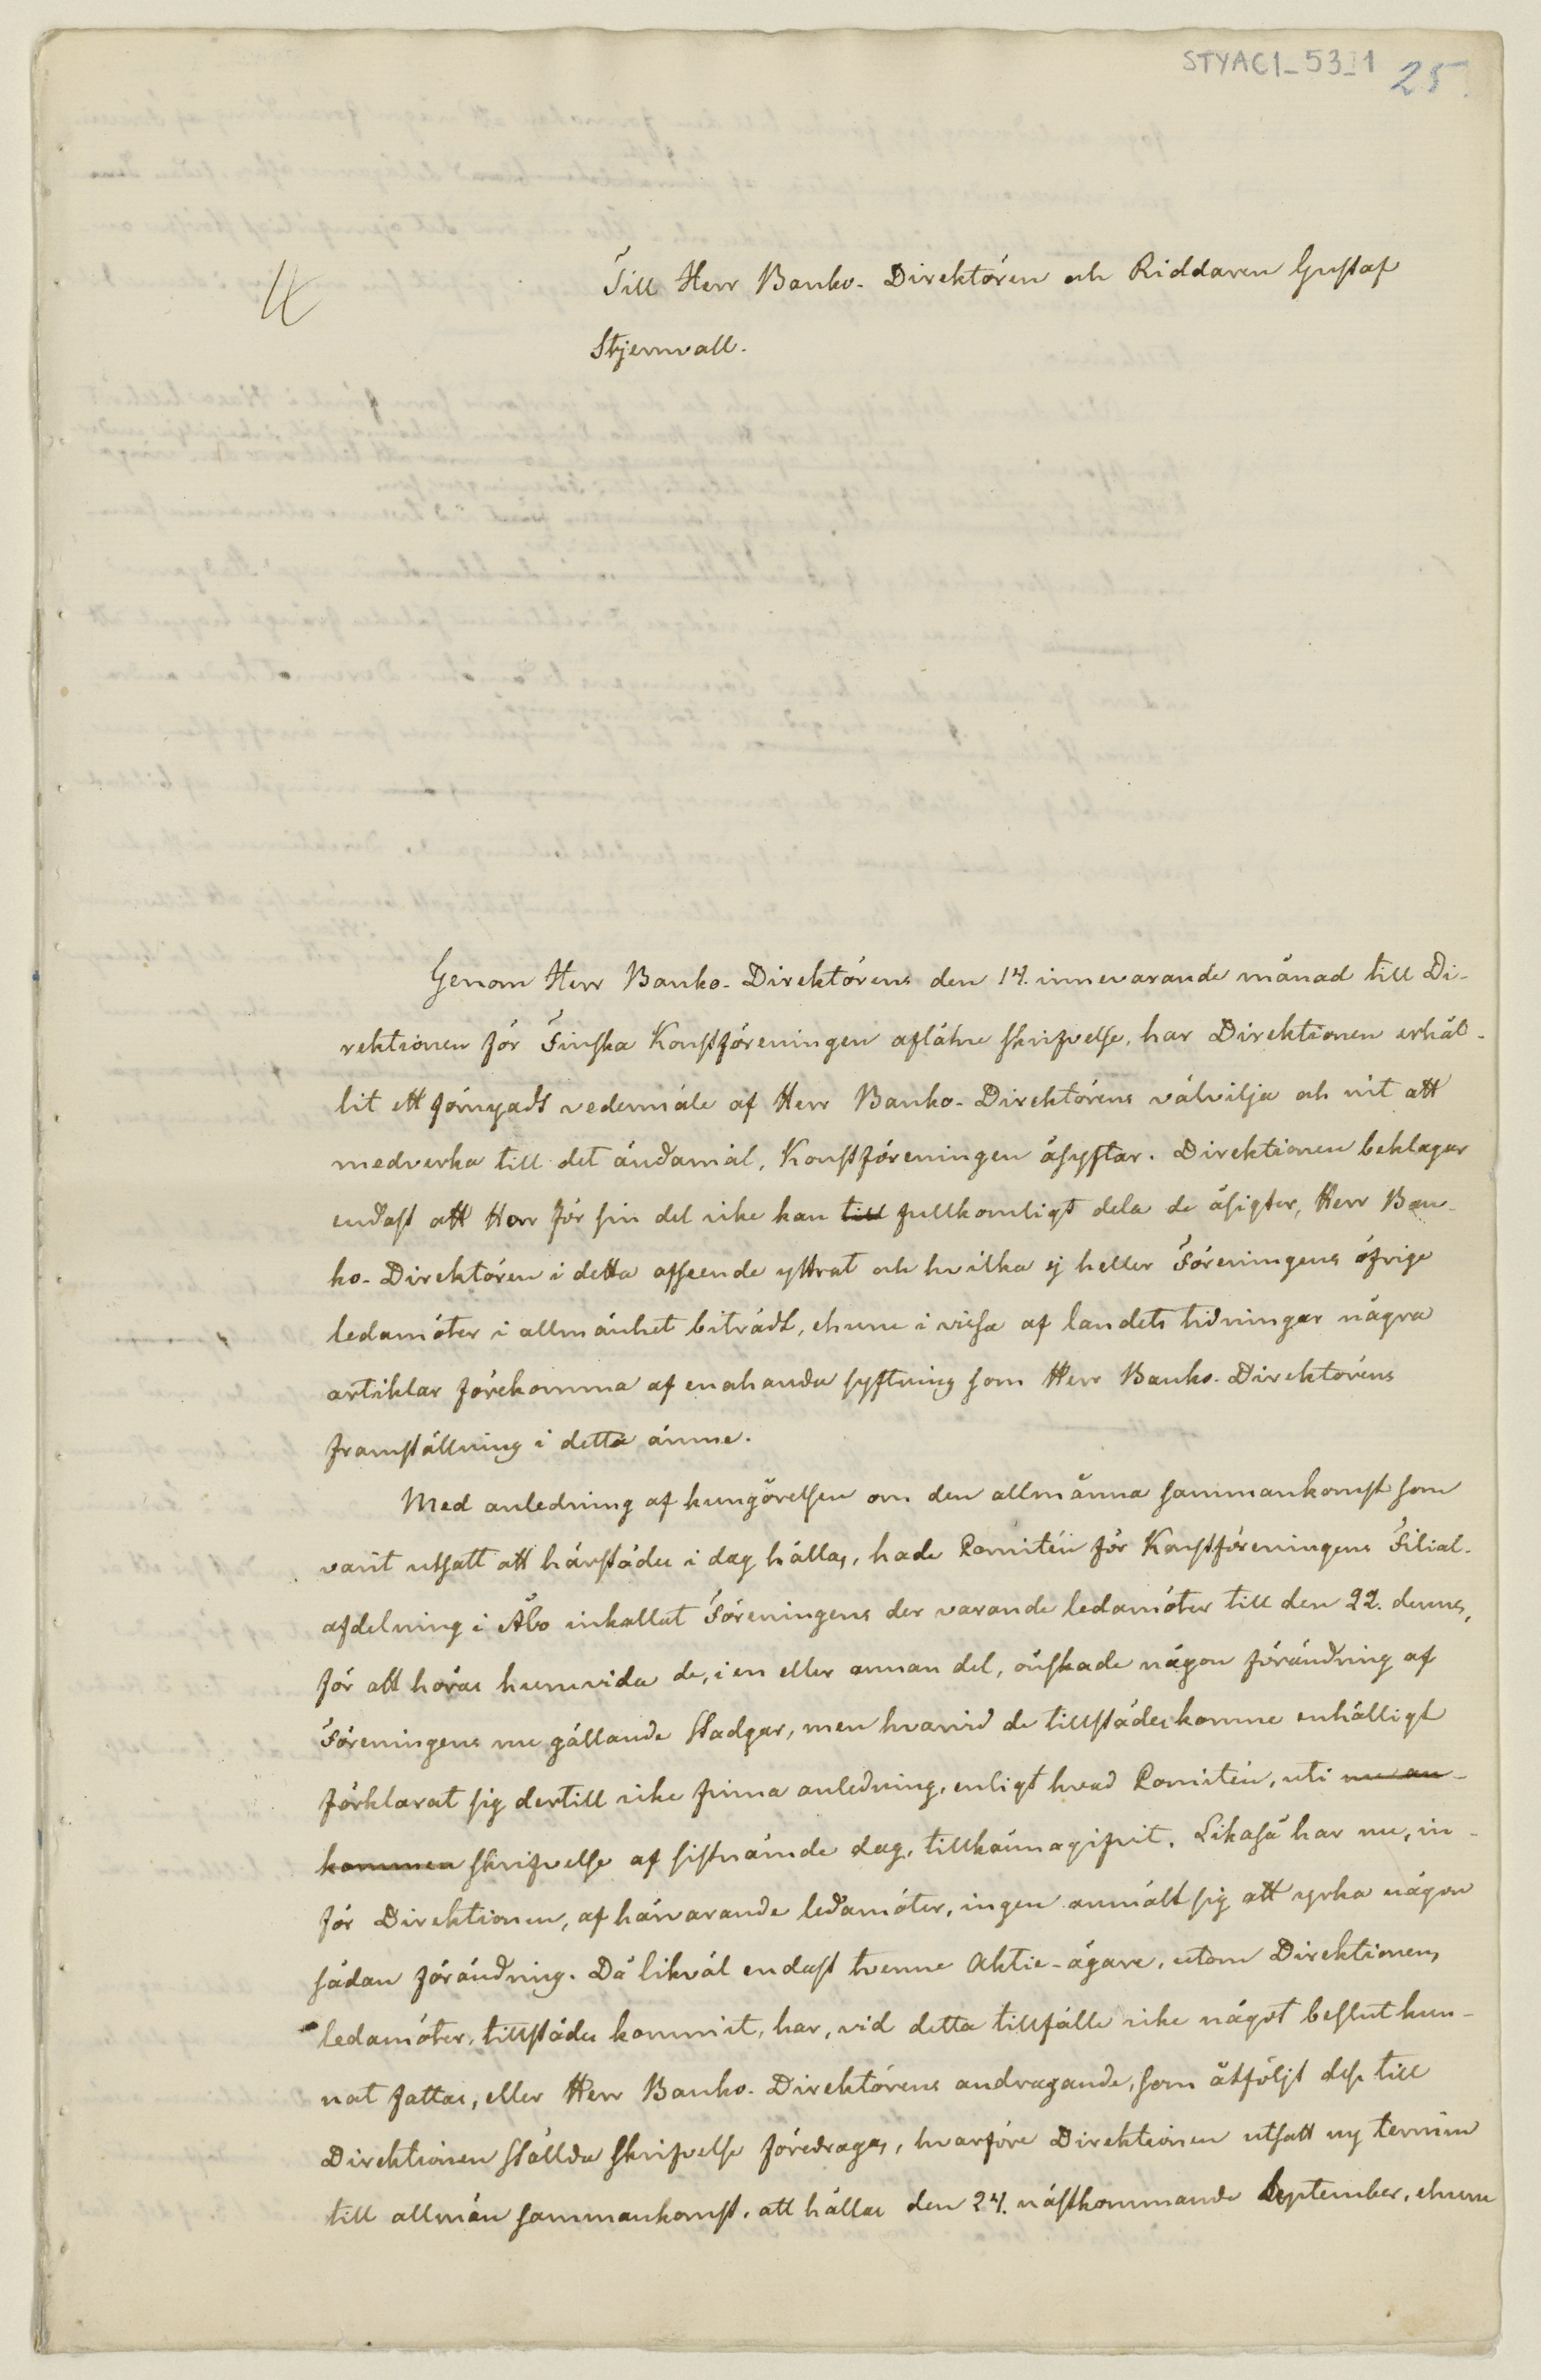 STYAC1_53_1 25.
Till Herr Banko-Direktören och Riddaren Gustaf
Stjernvall.
Genom Herr Banko-Direktörens den 14. innevarande månad till Di-
rektionen för Finska Konstföreningen aflåtne skrifvelse, har Direktionen erhål-
lit ett förnyadt vedermäle af Herr Banko-Direktörens välvilja och nit att
medverka till det ändamål, Konstföreningen åsyftar. Direktionen beklagar
endast att Herr för sin del icke kan till fullkomligt dela de åsigter, Herr Ban-
ko-Direktören i detta afseende yttrat och hvilka ej heller Föreningens öfrige
ledamöter i allmänhet biträdt, ehuru i vissa af landets tidningar några
artiklar förekomma af enahanda syftning som Herr Banko-Direktörens
framställning i detta ämne.
Med anledning af kungörelsen om den allmänna sammankomst som
varit utsatt att härstädes i dag hållas, hade Comitéen för Konstföreningens Filial-
afdelning i Åbo inkallat Föreningens der varande ledamöter till den 22. dennes,
för att höras huruvida de, i en eller annan del, önskade någon förändring af
Föreningens nu gällande Stadgar, men hvarvid de tillstädeskomne enhälligt
förklarat sig dertill icke finna anledning, enligt hvad Comitéen, uti nu an-
kommen skrifvelse af sistnämde dag, tillkännagifvit. Likaså har nu, in-
för Direktionen, af härvarande ledamöter, ingen anmält sig att yrka någon
sådan förändring. Då likväl endast tvenne Aktie-ägare, utom Direktionens
ledamöter, tillstädes kommit, har, vid detta tillfälle icke något beslut kun-
nat fattas, eller Herr Banko-Direktörens andragande, som åtföljt dess till
Direktionen ställda skrifvelse föredragas, hvarföre Direktionen utsatt ny termin
till allmän sammankomst, att hållas den 24. nästkommande September, ehuru